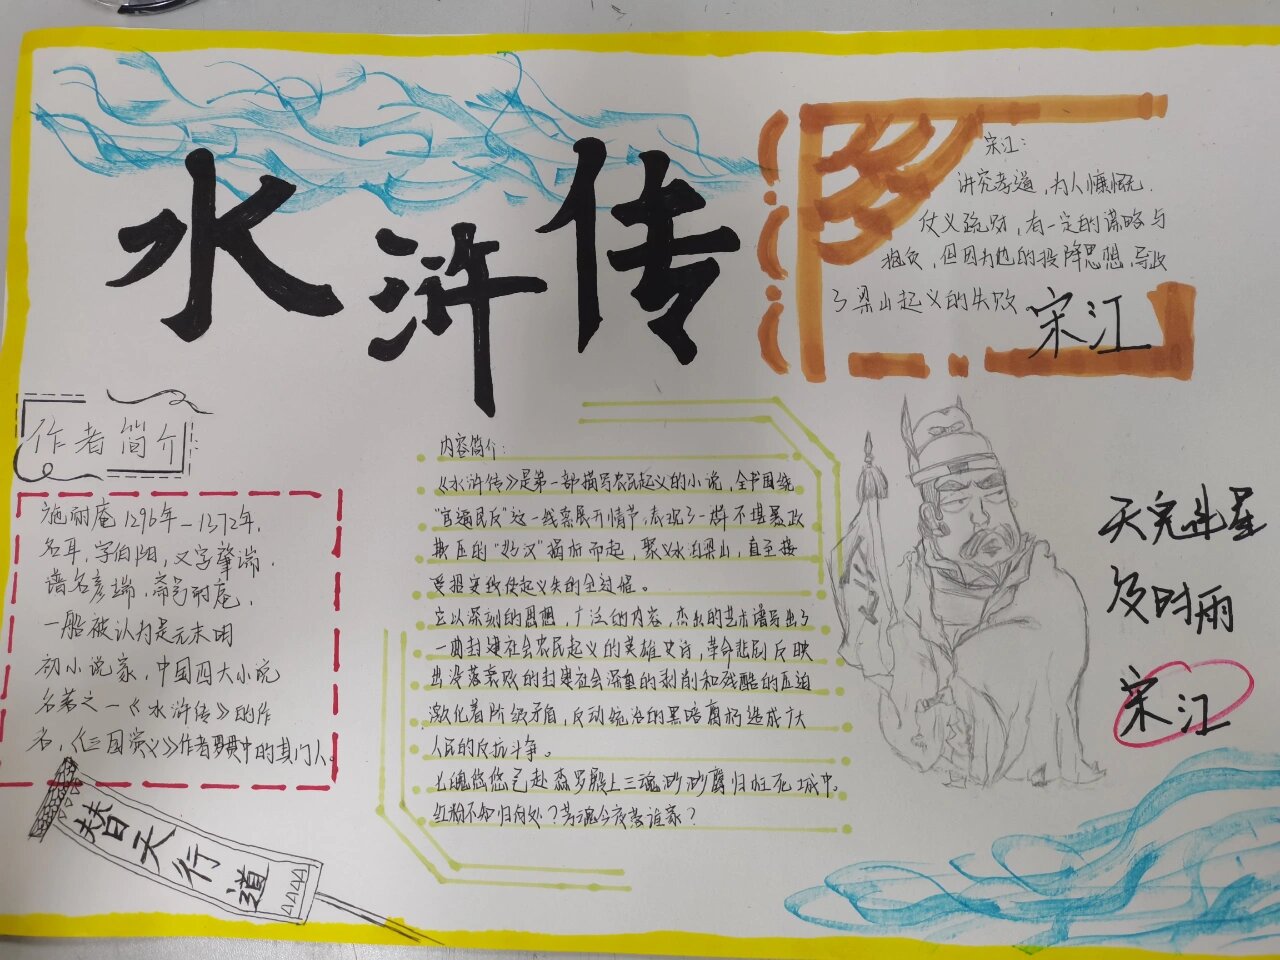 水浒传
宋江:
讲究孝道,为人慷慨.
仗义疏财,有一定的谋略与
抱负,但因为他的投降思想,导致
了梁山起义的失败
宋江
作者简介
施耐庵1296年—1372年.
名耳,字伯阳,又字肇瑞.
谱名彦端,斋号耐庵.
一般被认为是元末明
初小说家,中国四大小说
名著之一《水浒传》的作
名,《三国演义》作者罗贯中的其门人.
替天行道
内容简介:
《水浒传》是第一部描写农民起义的小说,全书围绕
"官逼民反"这一线索展开情节,表现了一群不堪暴政
欺压的"好汉"揭竿而起,聚义水泊梁山,直至接
受招安致使起义失的全过程。
它以深刻的思想,广泛的内容,杰出的艺术谱写出了
一曲封建社会农民起义的英雄史诗,革命悲剧反映
出没落衰败的封建社会深重的剥削和残酷的压迫
激化着阶级矛盾,反动统治的黑暗腐朽造成广大
人民的反抗斗争。
七魄悠悠已赴森罗殿上三魂渺渺应归枉死城中.
红粉不知归何处?芳魂今夜落谁家?
天
及时雨
宋江